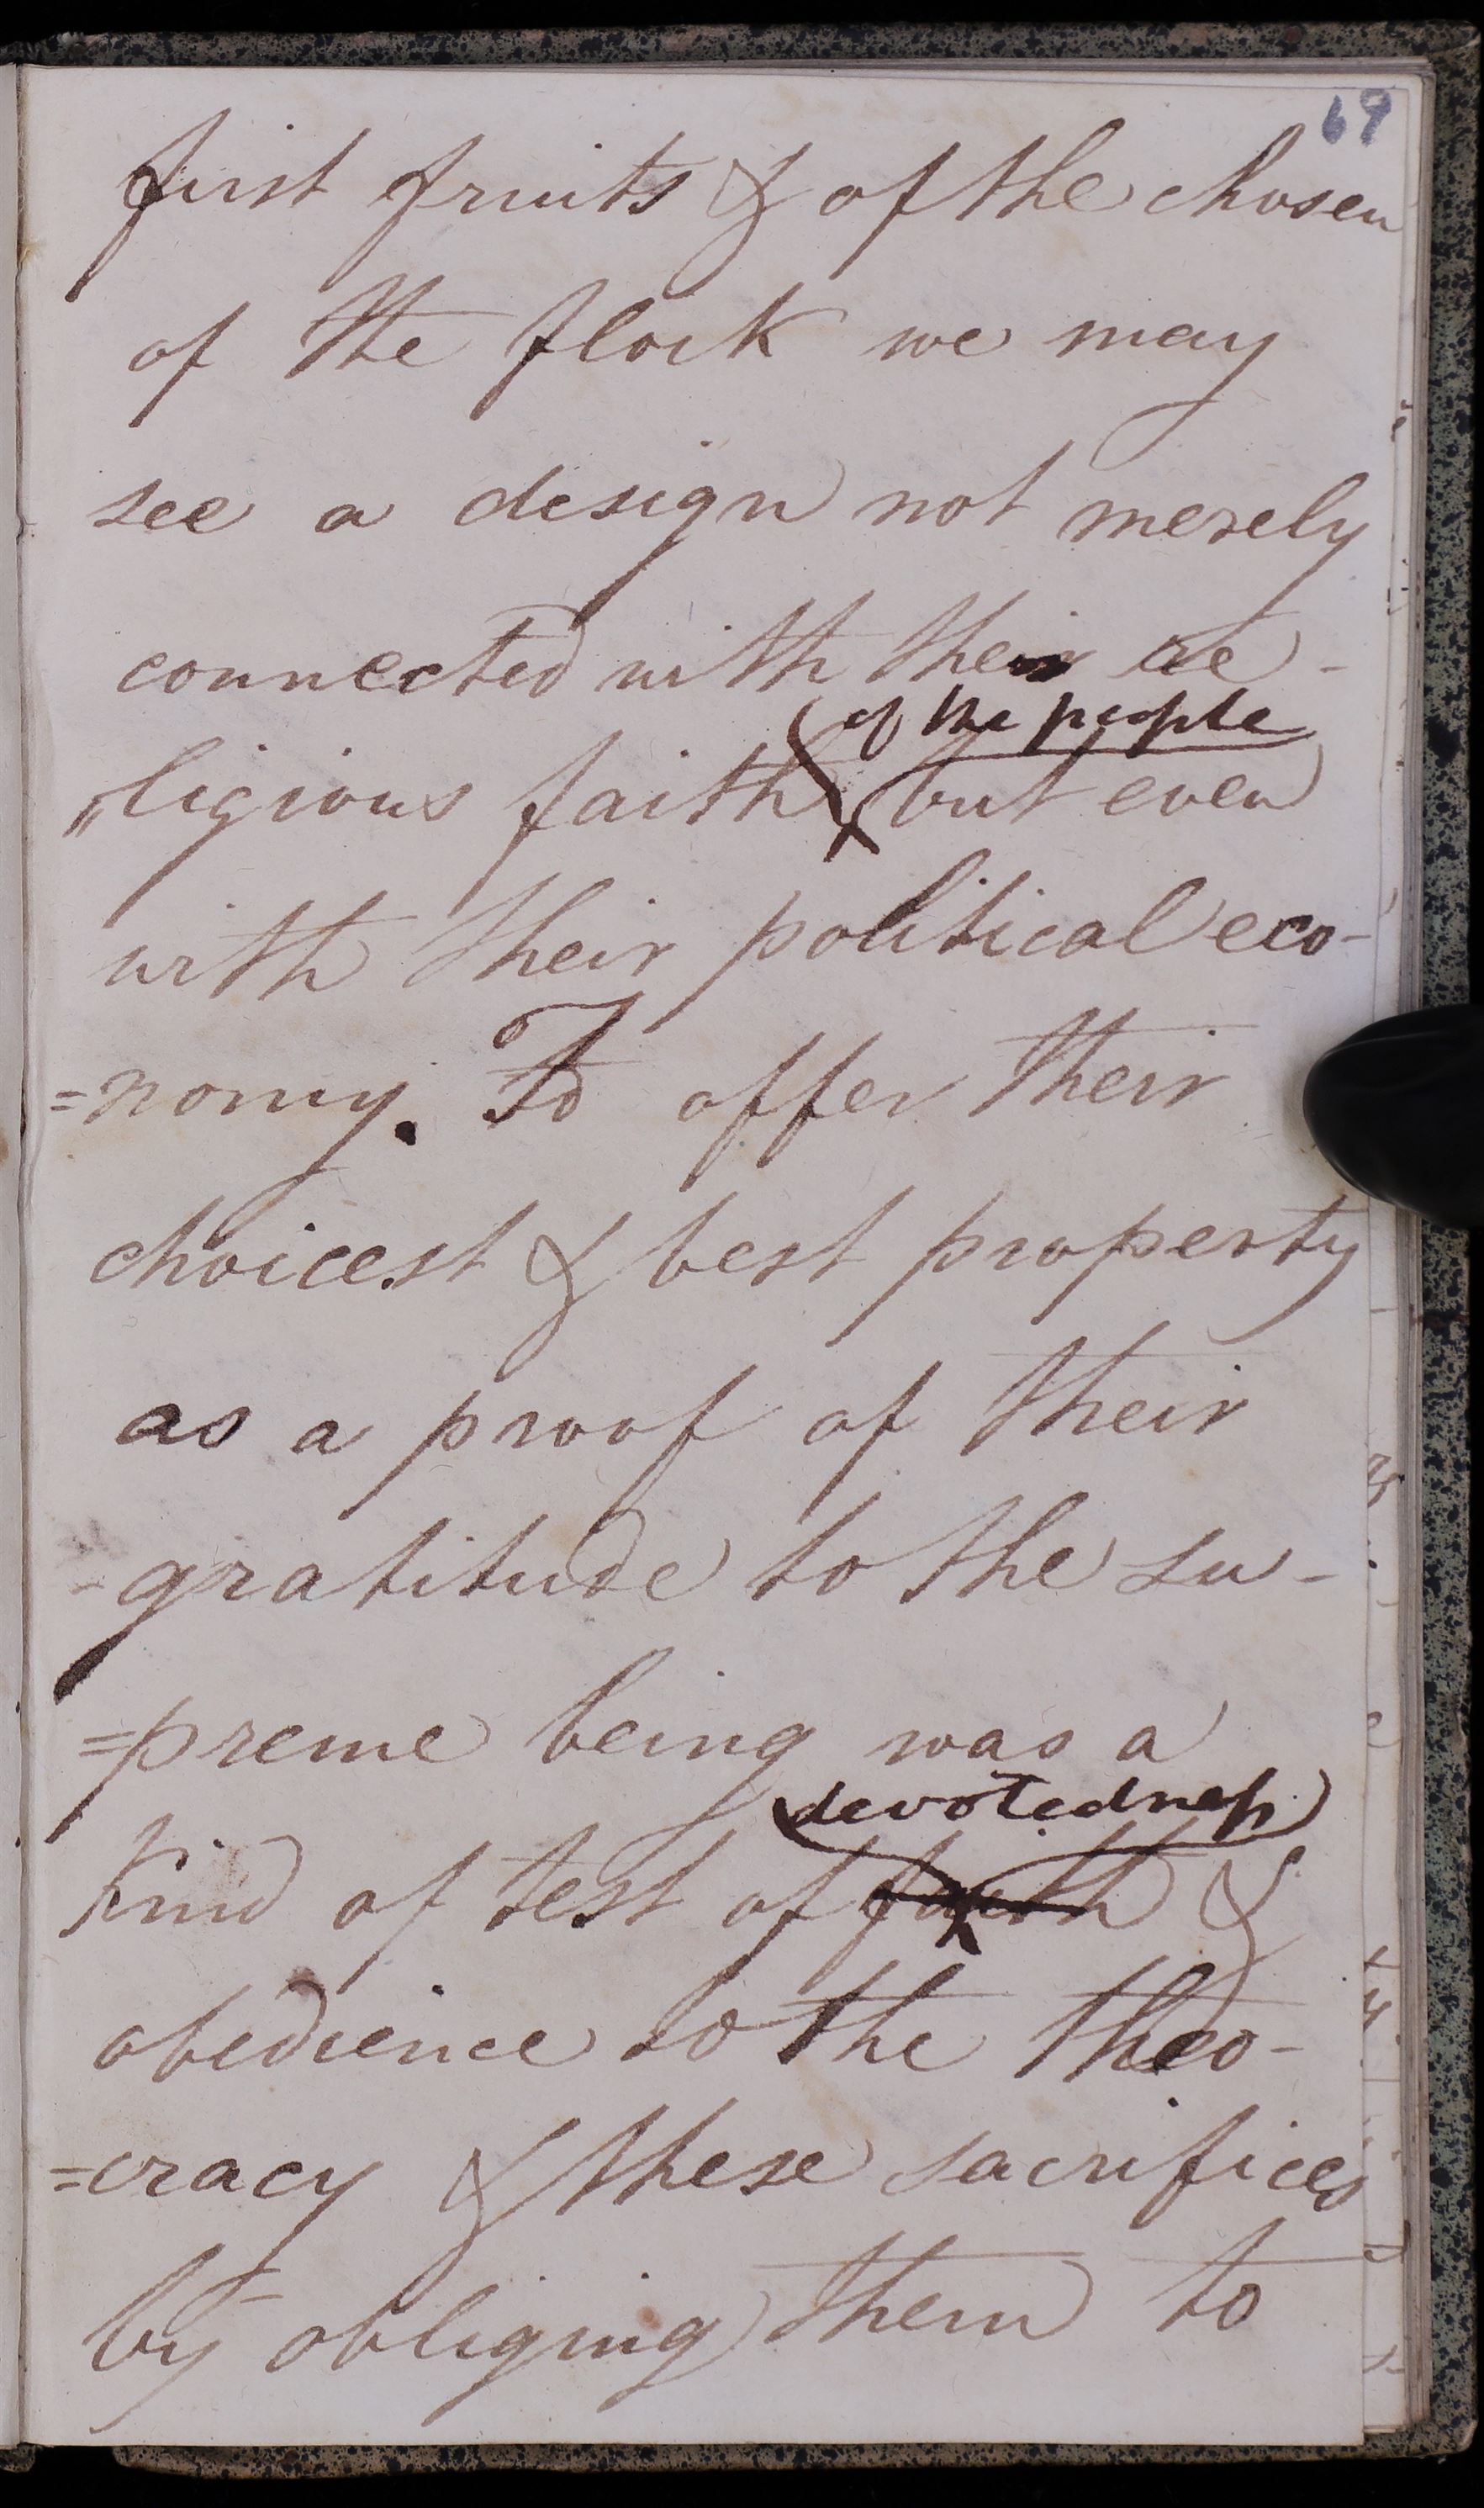 69
first fruits & of the chosen
of the flock we may
see a design not merely
connected with their re-
of the people
"ligious faith but even
with their political eco-
=nomy. To offer their
choicest & best property
as a proof of their
-gratitude to the su-
=preme being was a
devotedness
kind of test of faith &
obedience to the theo-
=cracy & these sacrifices
by obliging them to